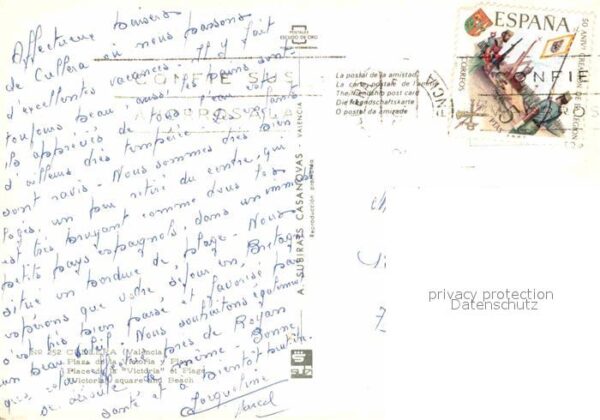 Affectueux baisers
de Cullera où nous passons
d'excellentes vacances. Il y fait
toujours beau aussi les bains sont
ils appréciés de tous, l'eau étant
d'ailleurs très tempérée
sont ravis. Nous sommes très bien
logés, un peu retiré du centre, qui
est très bruyant comme dans tous
petits pays espagnols, dans un immeuble
situé en bordure de plage. Nous
espérons que votre séjour en Bretagne
s'est très bien passé et favorisé par
un beau soleil. Nous souhaitons également
que près de Royan
se déroule de même. Bonne
santé et à bientôt
Jacqueline
Marcel
Nº 252 CULLERA (Valencia)
Plaza de la Victoria y Playa
Place de la "Victoria" et Plage
Victoria square and Beach
POSTALES
ESCUDO DE ORO
A. SUBIRATS CASANOVAS - VALENCIA
Reproducción prohibida
La postal de la amistad
La carte postale de l'amitié
The friendship post card
Die Freundschaftskarte
O postal da amizade
CONFIE SUS
ESPAÑA
CORREOS
CONFIE
privacy protection
Datenschutz